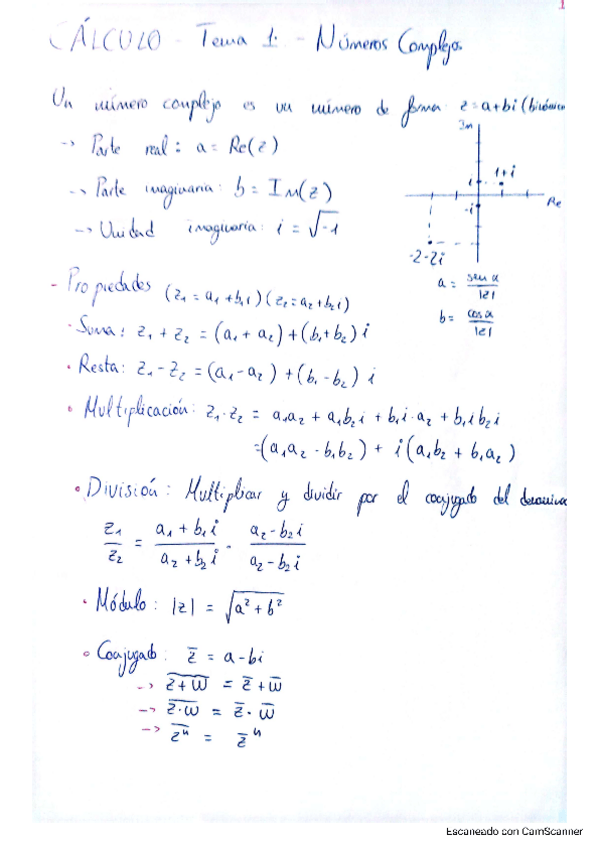 1
CÁLCULO - Tema 1. - Números Complejos
Un número complejo es un número de forma: z = a+bi (binómica
Im
-> Parte real: a = Re(z)
-> Parte imaginaria: b = Im(z)
-> Unidad imaginaria: i = √-1
i 1+i
-i Re
-2-2i
a = sen α / |z|
b = cos α / |z|
- Propiedades (z₁ = a₁ + b₁i) (z₂ = a₂ + b₂i)
· Suma: z₁ + z₂ = (a₁ + a₂) + (b₁ + b₂) i
· Resta: z₁ - z₂ = (a₁ - a₂) + (b₁ - b₂) i
· Multiplicación: z₁ · z₂ = a₁a₂ + a₁b₂i + b₁i·a₂ + b₁i b₂i
= (a₁a₂ - b₁b₂) + i(a₁b₂ + b₁a₂)
· División: Multiplicar y dividir por el conjugado del
z₁/z₂ = (a₁ + b₁i)/(a₂ + b₂i) · (a₂ - b₂i)/(a₂ - b₂i)
· Módulo: |z| = √(a² + b²)
· Conjugado: z̄ = a - bi
-> z̅+̅w̅ = z̄ + w̄
-> z̅·̅w̅ = z̄ · w̄
-> z̅ⁿ̅ = z̄ⁿ
Escaneado con CamScanner